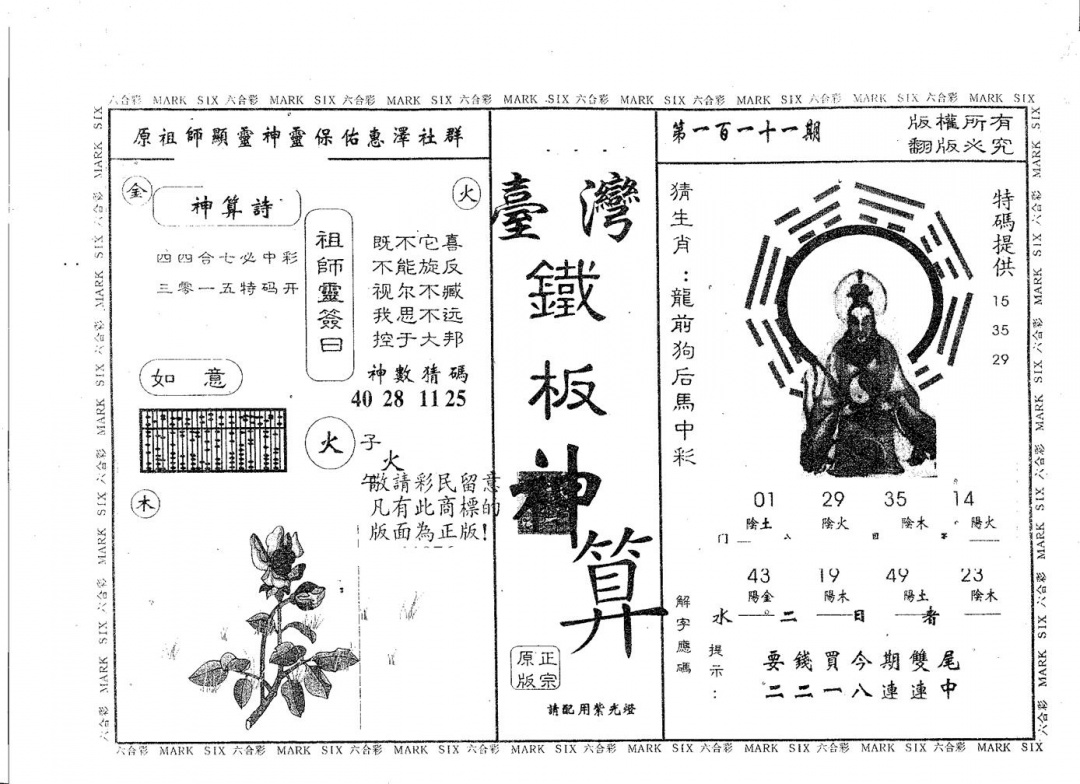 六合彩 MARK SIX 六合彩 MARK SIX 六合彩 MARK SIX 六合彩 MARK SIX 六合彩 MARK SIX 六合彩 MARK SIX 六合彩 MARK SIX 六合彩 MARK SIX
原祖師顯靈神靈保佑惠澤社群
金
神算詩
火
四四合七必中彩
三零一五特码开
祖師靈簽曰
既不它喜
不能旋反
视尔不臧
我思不远
控于大邦
神數猜碼
40 28 11 25
如意
火
子
火
午
敬請彩民留意
凡有此商標的
版面為正版!
木
臺灣
鐵
板
神
算
正宗
原版
請配用紫光燈
第一百一十一期
版權所有
翻版必究
猜生肖:龍前狗后馬中彩
特碼提供
15
35
29
01 29 35 14
陰土 陰火 陰木 陽火
43 19 49 23
陽金 陽木 陽土 陰木
水 二 日 者
解字應碼
提示:
要錢買今期雙尾
二二一八連連中
六合彩 MARK SIX 六合彩 MARK SIX 六合彩 MARK SIX 六合彩 MARK SIX 六合彩 MARK SIX 六合彩 MARK SIX 六合彩 MARK SIX 六合彩 MARK SIX